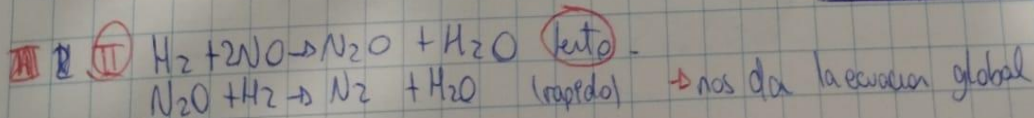 II H2 + 2NO → N2O + H2O lento.
N2O + H2 → N2 + H2O (rapido) → nos da la ecuacion global